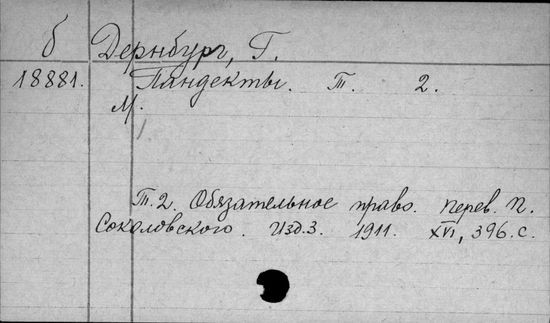 б Дернбург, Г.
18881. Пандекты. Т. 2.
М.
Т. 2. Обязательное право. Перев. П.
Соколовского. Изд. 3. 1911. XVI, 396. с.